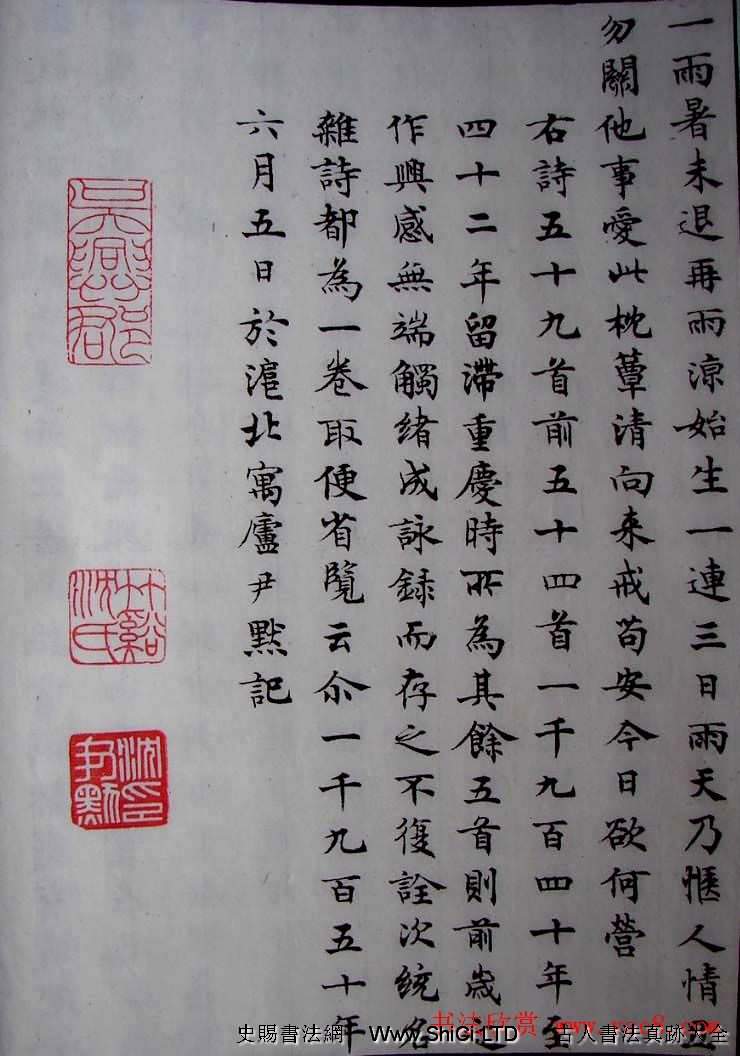 一雨暑未退再雨涼始生一連三日雨天乃愜人情
勿關他事愛此枕蕈清向来戒苟安今日欲何營
右詩五十九首前五十四首一千九百四十年至
四十二年留滯重慶時所為其餘五首則前歲近
作興感無端觸緒成詠録而存之不復詮次統名
雜詩都為一卷取便省覽云尒一千九百五十年
六月五日於滬北寓廬尹默記
吳燕郡
竹谿沈氏
沈尹默印
书法欣赏
史賜書法網 Www.ShiCi.LTD 古人書法真跡大全